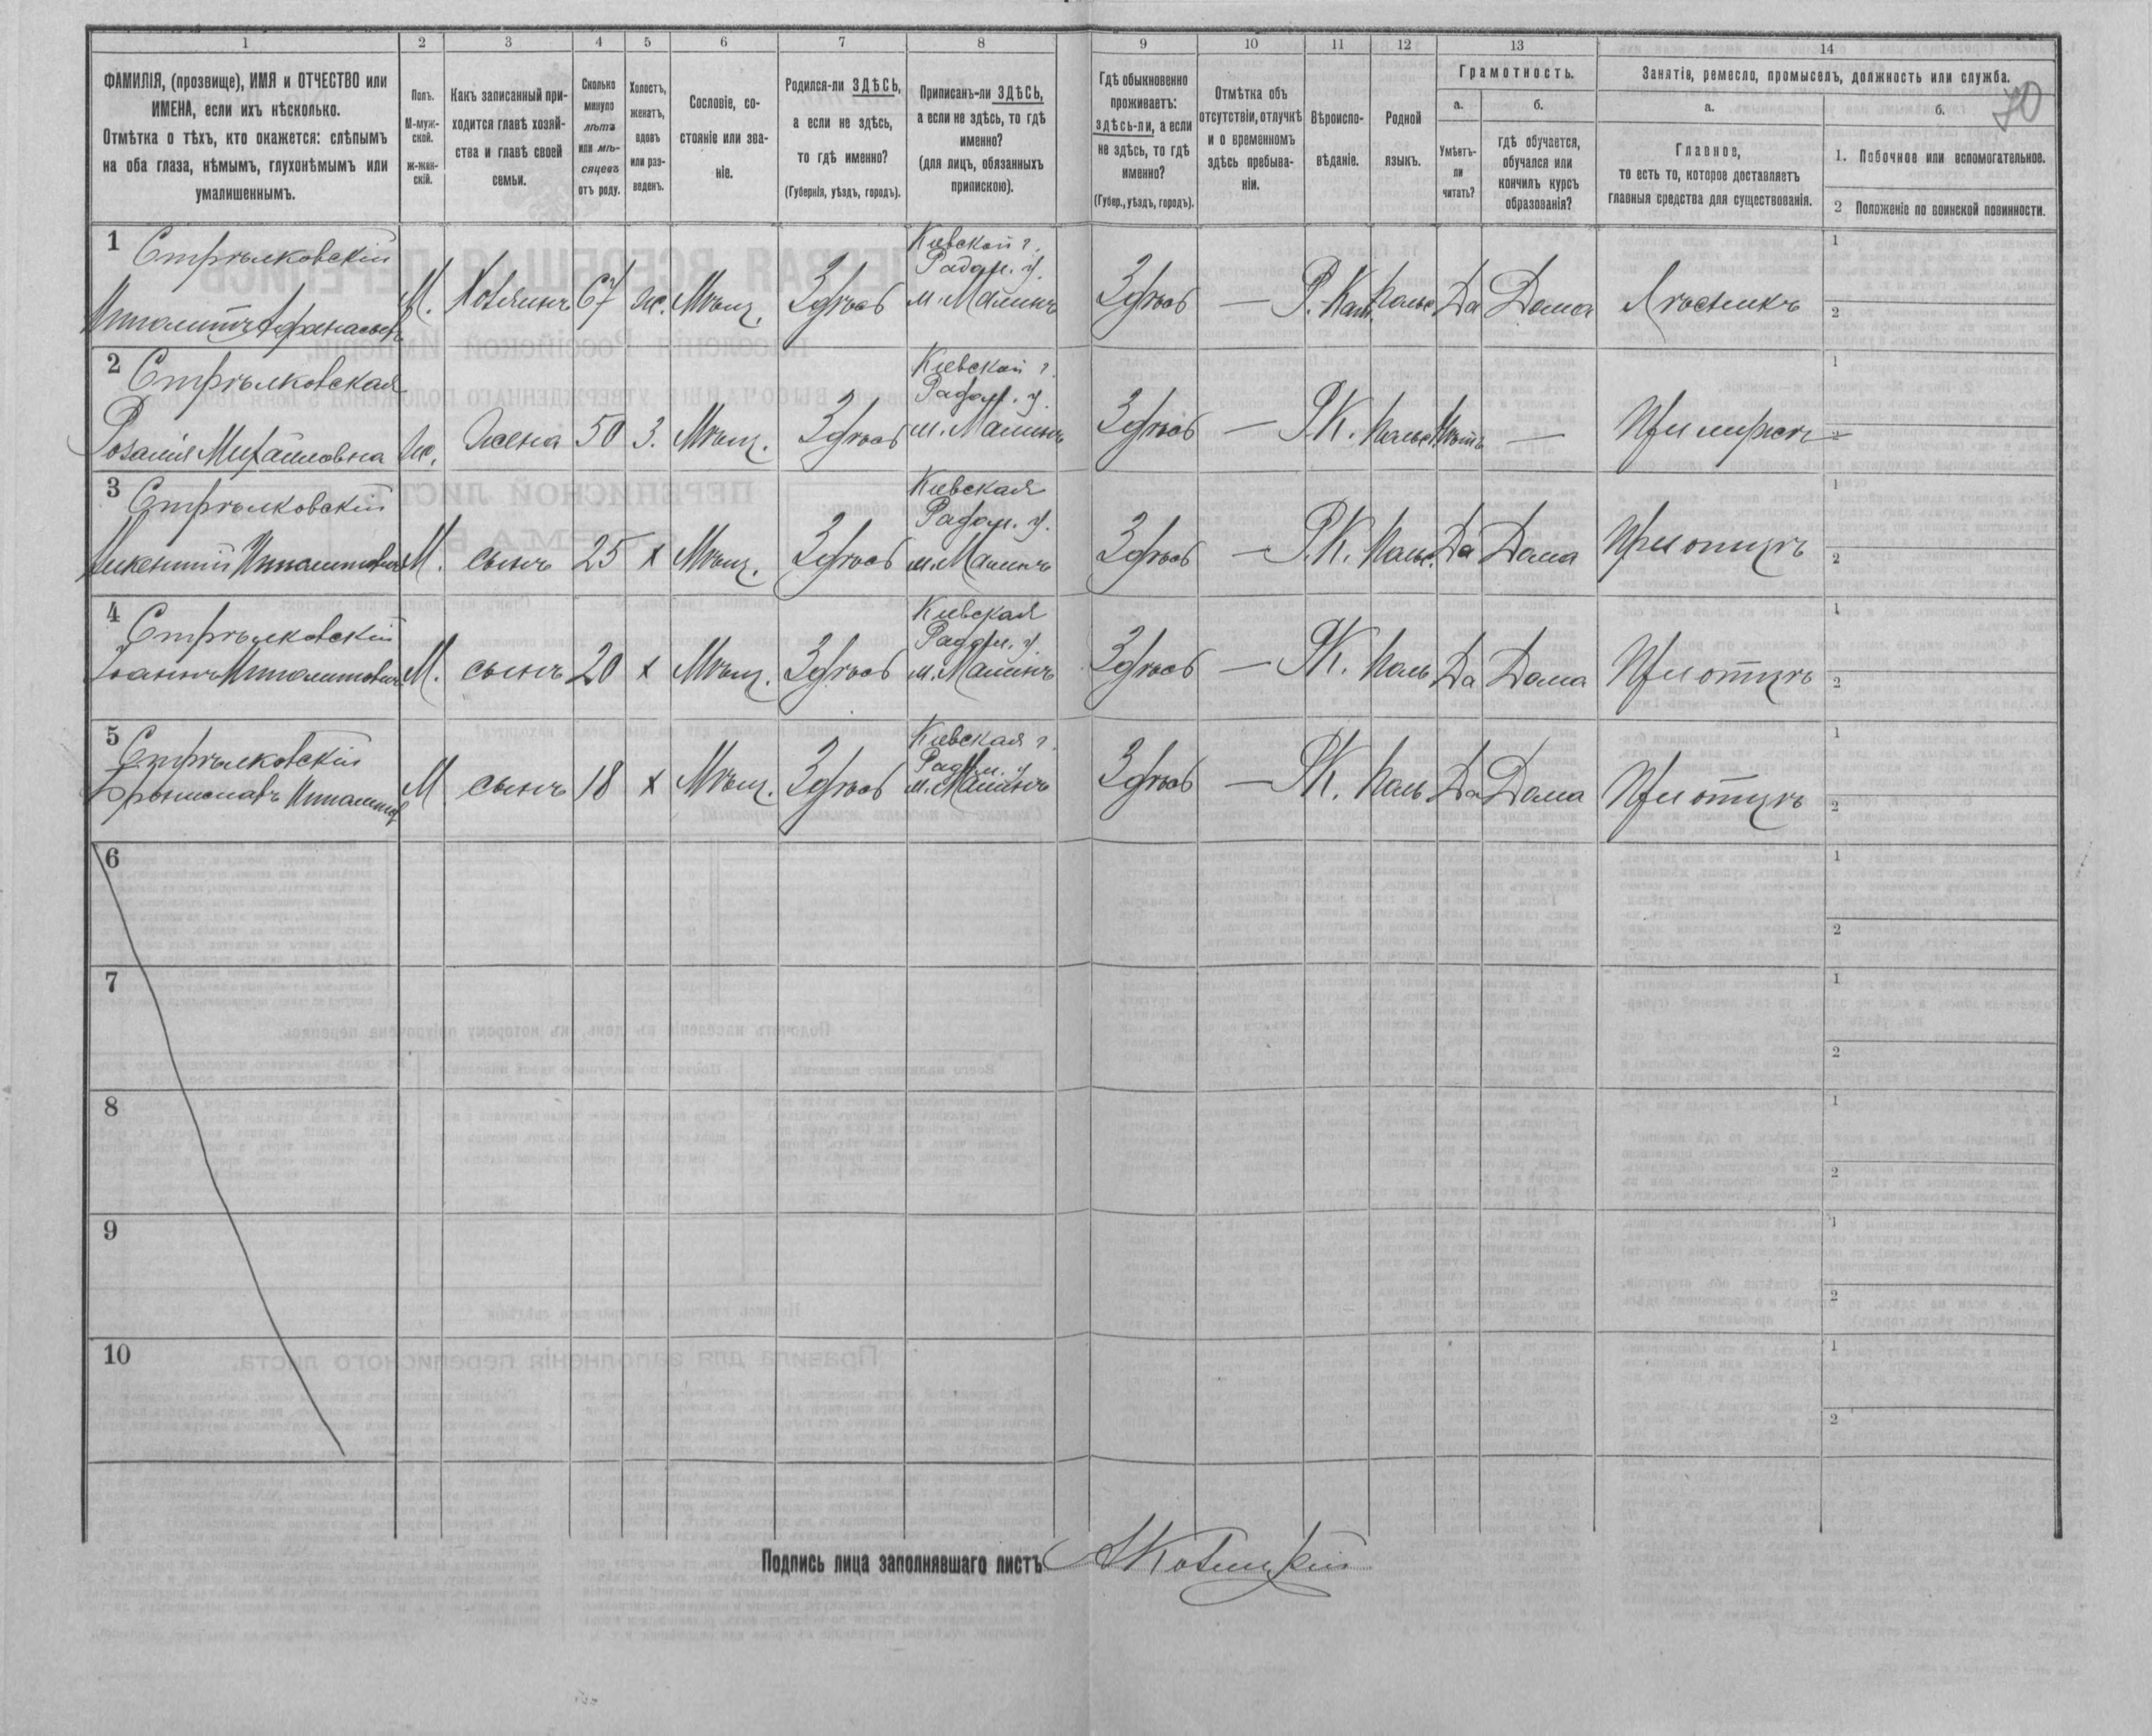 1 2 3 4 5 6 7 8 9 10 11 12 13 14
ФАМИЛІЯ, (прозвище), ИМЯ и ОТЧЕСТВО или
ИМЕНА, если ихъ нѣсколько.
Отмѣтка о тѣхъ, кто окажется: слѣпымъ
на оба глаза, нѣмымъ, глухонѣмымъ или
умалишеннымъ.
Полъ.
М-муж-
ской.
ж-жен-
скій.
Какъ записанный при-
ходится главѣ хозяй-
ства и главѣ своей
семьи.
Сколько
минуло
лѣтъ
или мѣ-
сяцевъ
отъ роду.
Холостъ,
женатъ,
вдовъ
или раз-
веденъ.
Сословіе, со-
стояніе или зва-
ніе.
Родился-ли ЗДѢСЬ,
а если не здѣсь,
то гдѣ именно?
(Губернія, уѣздъ, городъ).
Приписанъ-ли ЗДѢСЬ,
а если не здѣсь, то гдѣ
именно?
(для лицъ, обязанныхъ
припискою).
Гдѣ обыкновенно
проживаетъ:
здѣсь-ли, а если
не здѣсь, то гдѣ
именно?
(Губер., уѣздъ, городъ).
Отмѣтка объ
отсутствіи, отлучкѣ
и о временномъ
здѣсь пребыва-
ніи.
Вѣроиспо-
вѣданіе.
Родной
языкъ.
Грамотность.
а.
Умѣетъ-
ли
читать?
б.
гдѣ обучается,
обучался или
кончилъ курсъ
образованія?
Занятіе, ремесло, промыселъ, должность или служба.
а.
Главное,
то есть то, которое доставляетъ
главныя средства для существованія.
б.
70
1. Побочное или вспомогательное.
2 Положеніе по воинской повинности.
1 Стрѣлковскій
Ипполитъ Афанасьев.
М. Хозяинъ 67 ж. Мѣщ. Здѣсь
Кіевской г.
Радом. у.
м. Малинъ
Здѣсь — Р.-Кат. Польс. Да Дома Лѣсникъ
1
2
2 Стрѣлковская
Розалія Михайловна
Ж. Жена 50 З. Мѣщ. Здѣсь
Кіевской г.
Радом. у.
м. Малинъ
Здѣсь — Р.К. Польс. Нѣтъ — При мужѣ
1
2
3 Стрѣлковскій
Викентій Ипполитовичъ
М. сынъ 25 х Мѣщ. Здѣсь
Кіевская
Радом. у.
м. Малинъ
Здѣсь — Р.К. Польс. Да Дома При отцѣ
1
2
4 Стрѣлковскій
Іоаннъ Ипполитович
М. сынъ 20 х Мѣщ. Здѣсь
Кіевская
Радом. у.
м. Малинъ
Здѣсь — Р.К. Поль Да Дома При отцѣ
1
2
5 Стрѣлковскій
Брониславъ Ипполитов
М сынъ 18 х Мѣщ. Здѣсь
Кіевская г.
Радом. у
м. Малинъ
Здѣсь — Р.К. Поль Да Дома При отцѣ
1
2
6
1
2
7
1
2
8
1
2
9
1
2
10
1
2
Подпись лица заполнявшаго листъ